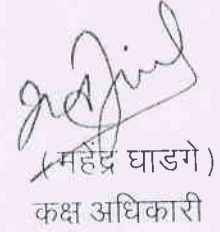 (महेंद्र घाडगे)
कक्ष अधिकारी